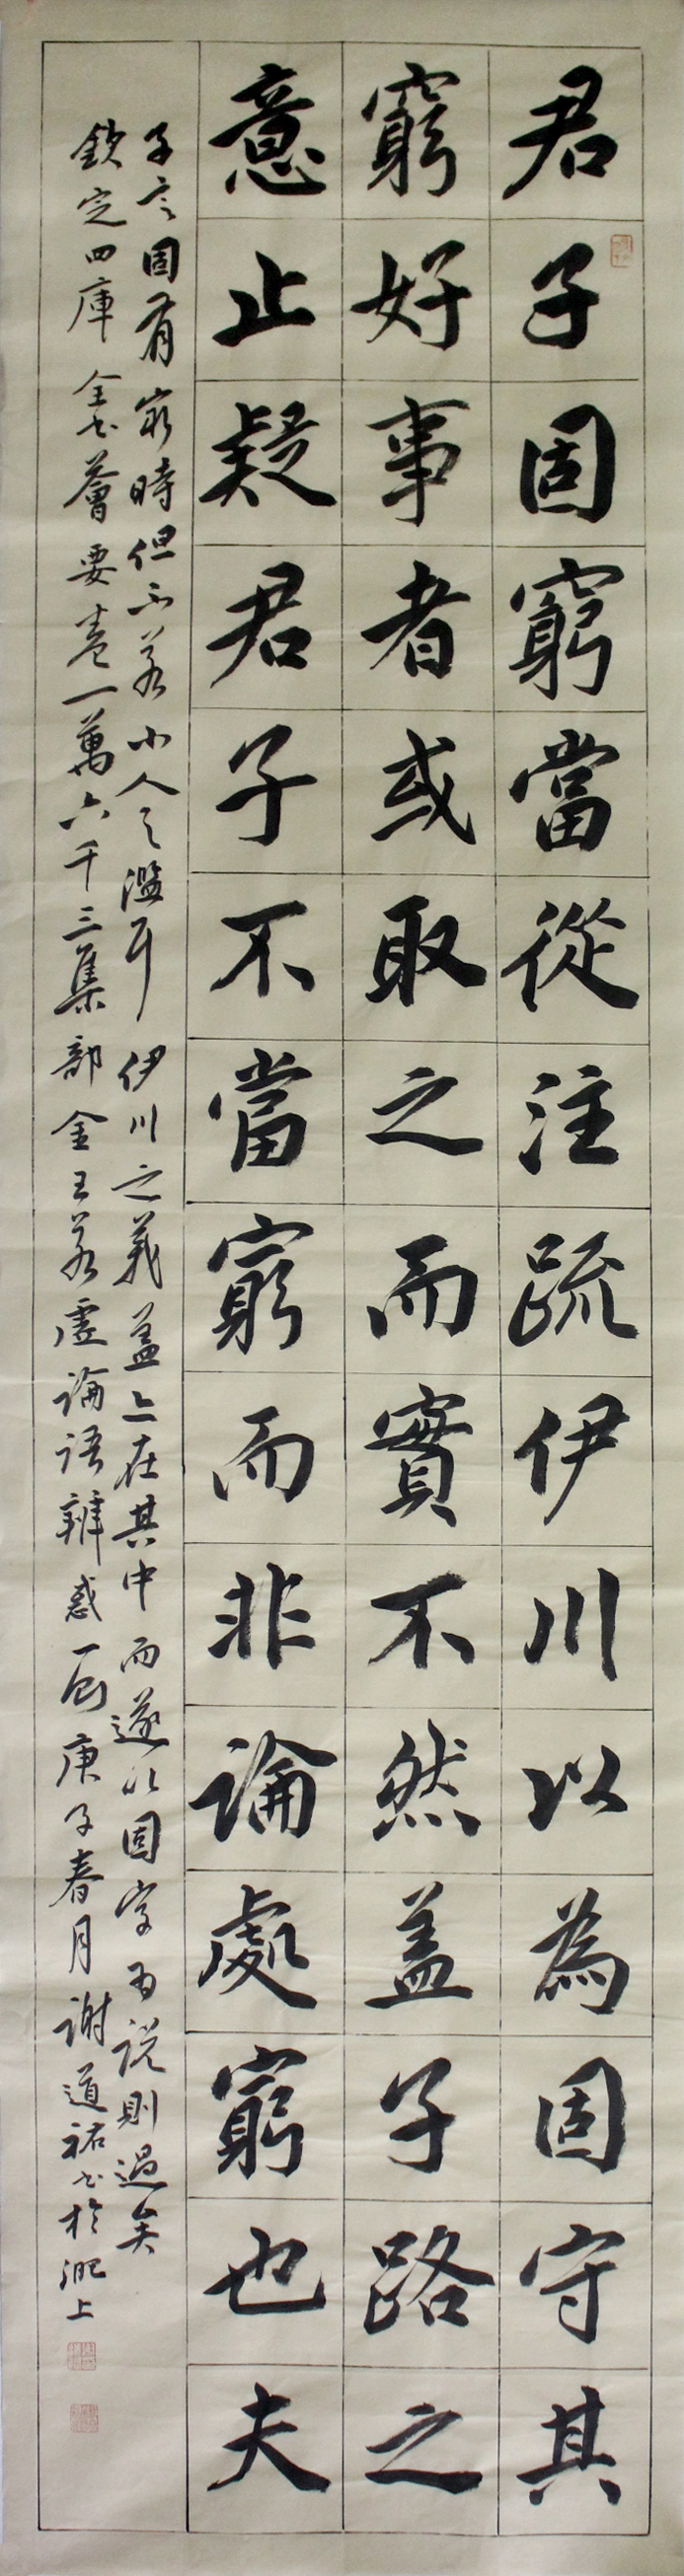 君子固窮當從注疏伊川以為固守其
窮好事者或取之而實不然蓋子路之
意止疑君子不當窮而非論處窮也夫
子言固有窮時但不若小人之濫耳伊川之義蓋亦在其中而遂以固字為說則過矣
欽定四庫全書薈要卷一萬六千三集部金王若虛論語辨惑一則庚子春月謝道祐書於淝上